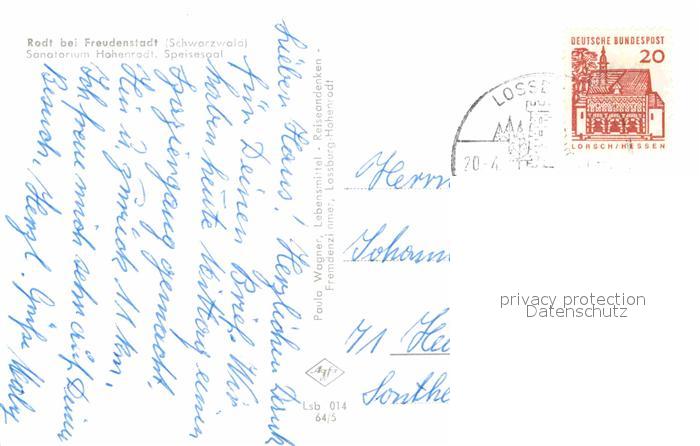 Rodt bei Freudenstadt (Schwarzwald)
Sanatorium Hohenrodt. Speisesaal
Lieber Hans! Herzlichen Dank
für Deinen Brief. Wir
haben heute Mittag einen
Spaziergang gemacht.
Hin u. zurück 11 km.
Ich freu mich sehr auf Deinen
Besuch. Herzl. Grüße
Paula Wagner, Lebensmittel - Reiseandenken -
Fremdenzimmer, Lossburg-Hohenrodt
Lsb 014
64/5
LOSSB
20.-4
DEUTSCHE BUNDESPOST
20
LORSCH/HESSEN
Herrn
Johann
71 Hei
Sonthe
privacy protection
Datenschutz